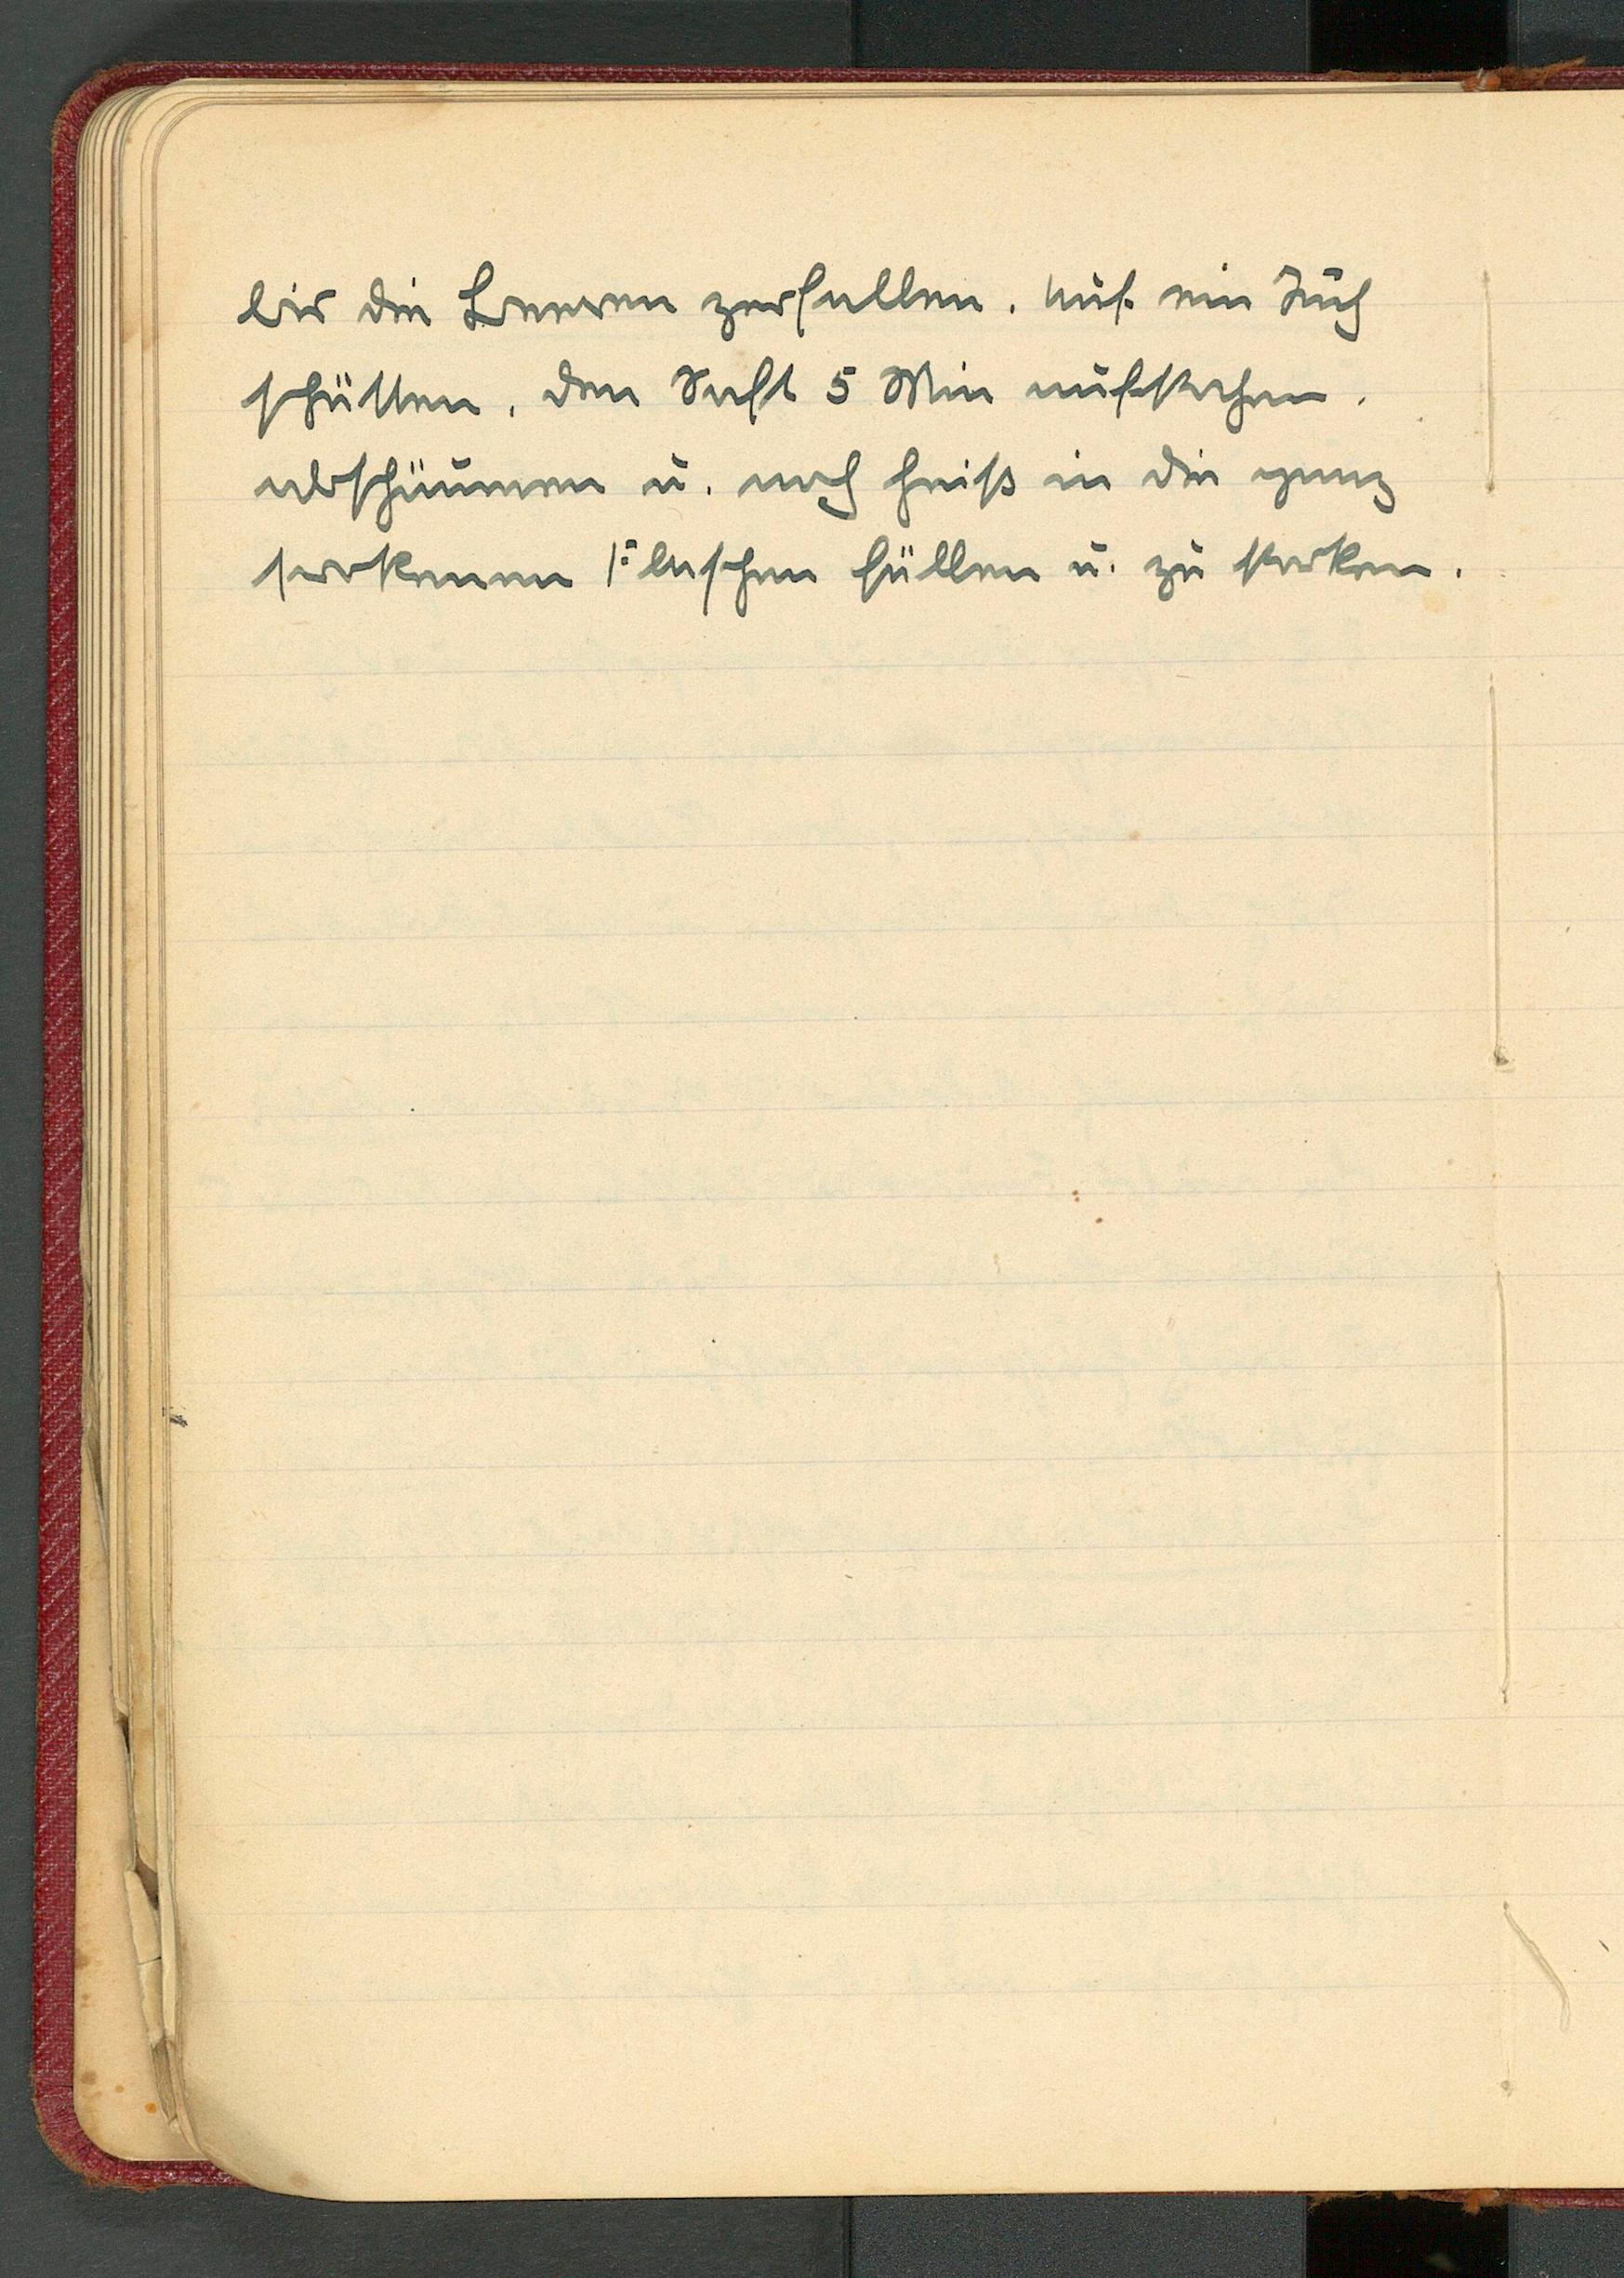 bis die Beeren zerfallen. Auf ein Tuch
schütten, den Saft 5 Min aufkochen.
abschäumen u. noch heiß in die ganz
trockenen Flaschen füllen u. zu korken.